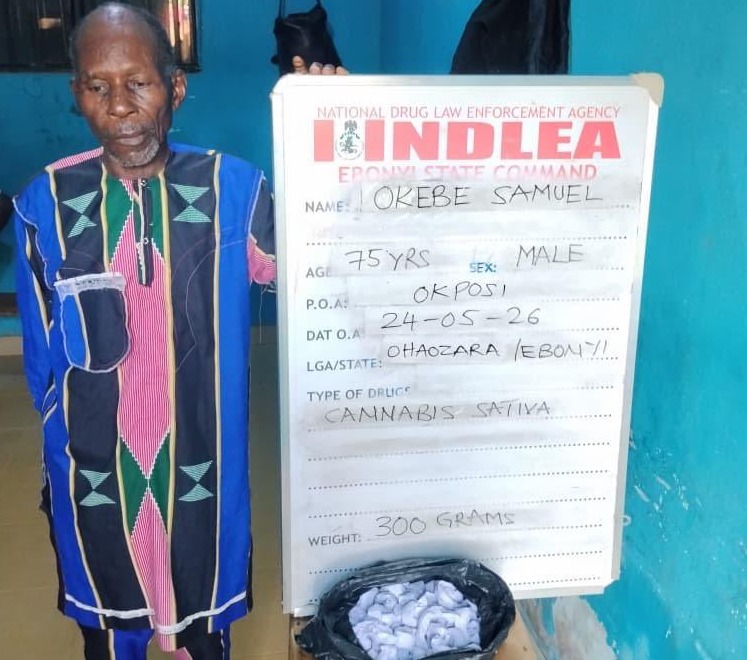 NATIONAL DRUG LAW ENFORCEMENT AGENCY
NDLEA
EBONYI STATE COMMAND
NAME: OKEBE SAMUEL
AGE 75YRS SEX: MALE
P.O.A: OKPOSI
DAT O.A 24-05-26
LGA/STATE: OHAOZARA /EBONYI
TYPE OF DRUGS
CANNABIS SATIVA
WEIGHT: 300 GRAMS